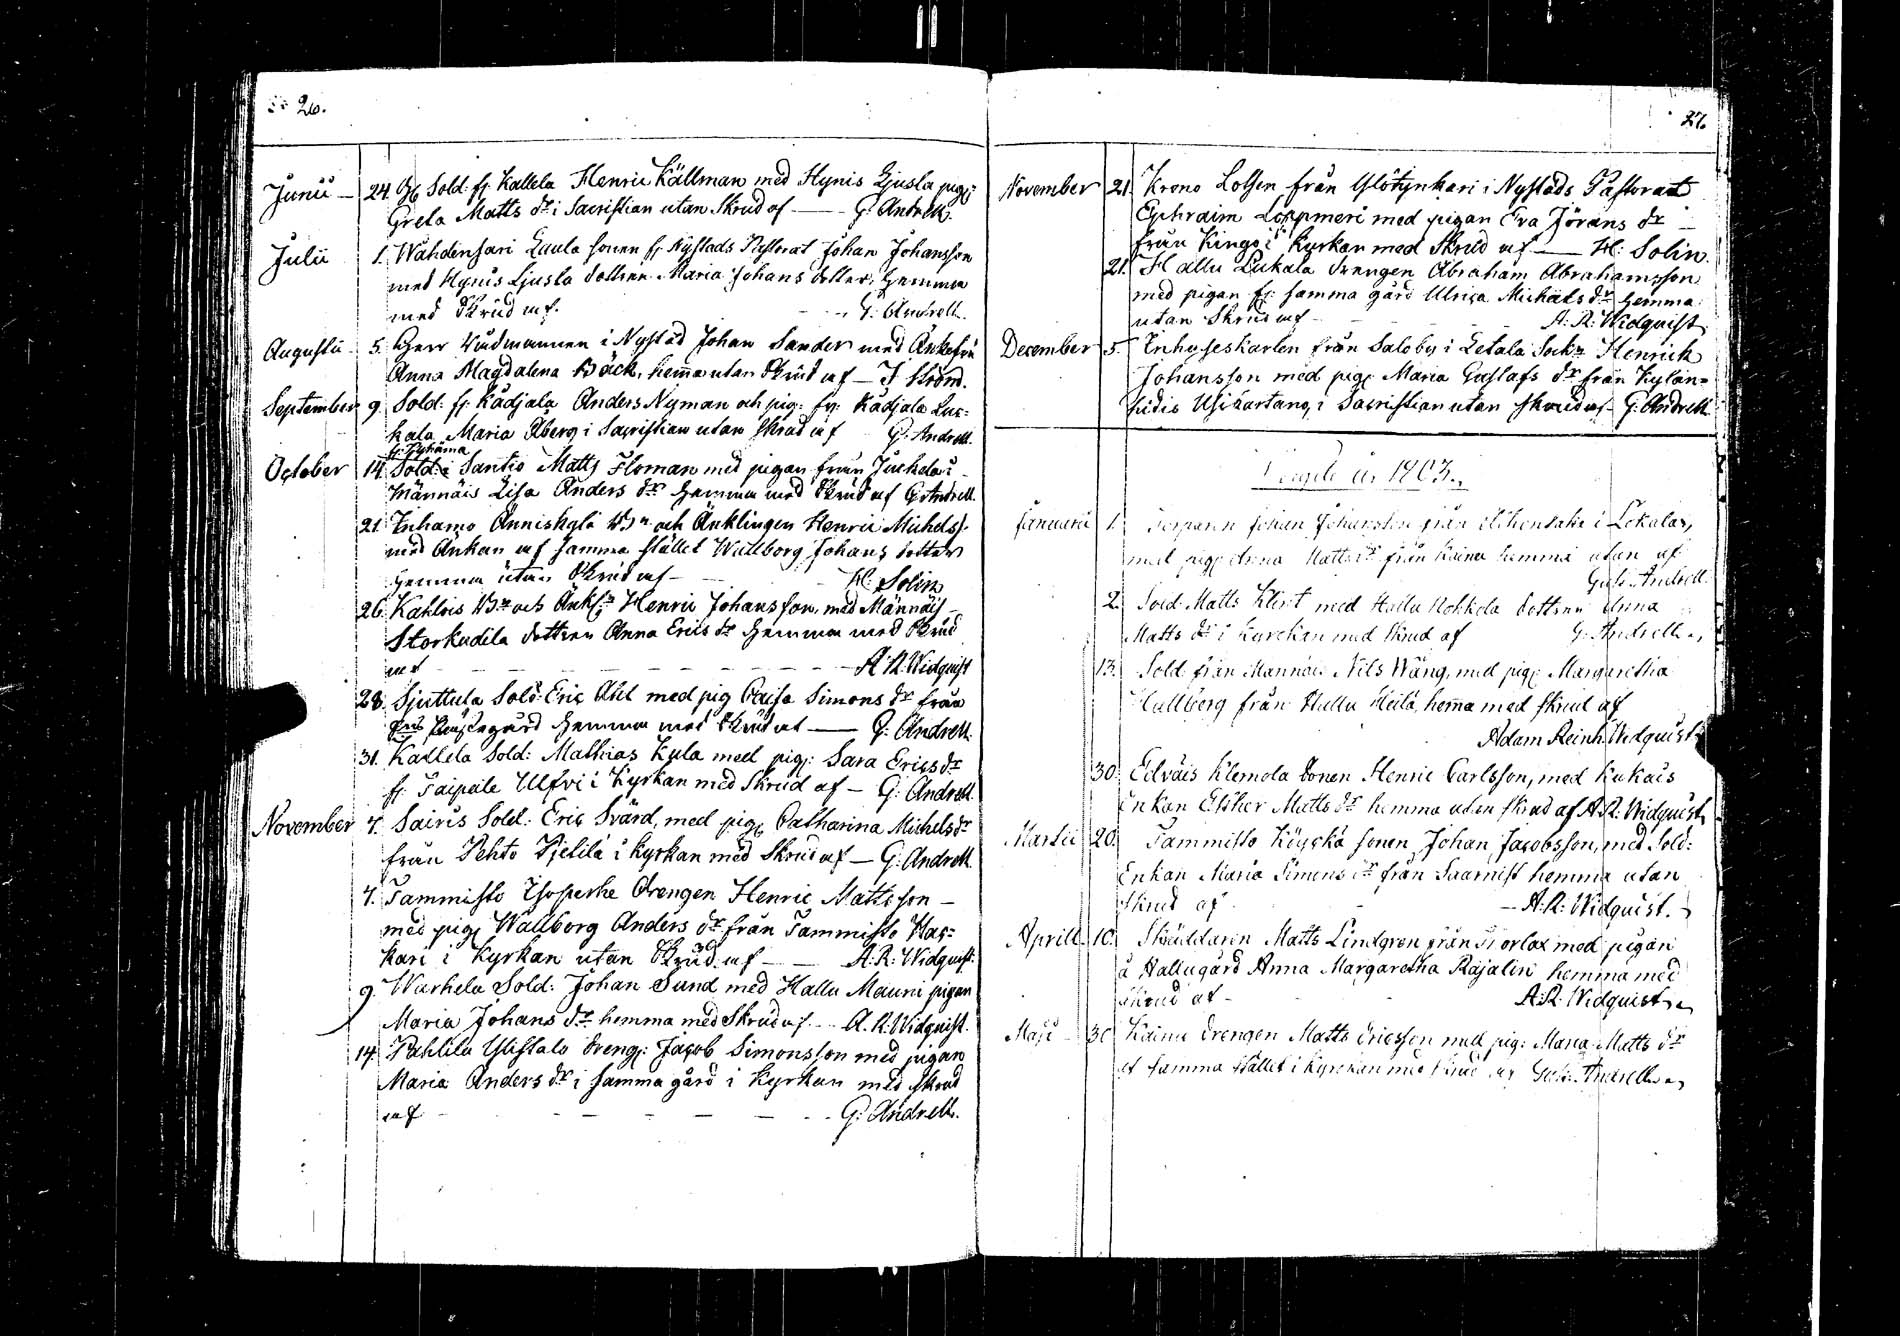 26.
Junii — 24. Sold: fr: Kallela Henric Källman med Hynis Ljusla pig:
Greta Matts dr i Sacristian utan Skrud af — G: Andrell.
Julii 1. Wahdensari Gaula sonen fr: Nystads Pastorat Johan Johansson
med Hynis Ljusla dottren Maria Johans dotter, hemma
med Skrud af. — G: Andrell.
Augusti 5. Herr Rådmannen i Nystad Johan Sander med Änkefru
Anna Magdalena Bäck, hemma utan Skrud af — J Ström.
September 9. Sold: fr: Kadjala Anders Nyman och pig: fr: Kadjala Luc=
kala Maria Åberg i Sacristian utan skrud af G: Andrell.
fr: Pyhäma
October 14. Sold: i Santio Matts Floman med pigan från
Männäis Lisa Anders dr hemma med Skrud af G: Andrell.
21. Inhamo Änniskylä Bn och Änklingen Henric Michelss:
med Änkan af samma stället Wallborg Johans dotter
hemma utan Skrud af — H: Solin
26. Kahlois Bn och Änkl: Henric Johansson, med Männäis
Storkudila dottren Anna Erics dr hemma med Skrud
af — A: R: Widquist
28. Sjuttula Sold: Eric Ahl med pig Caisa Simons dr från
gård hemma med Skrud af — G: Andrell.
31. Kallela Sold: Mathias Kula med pig: Sara Erics dr
fr: Taipale Ulfvi i Kyrkan med Skrud af — G: Andrell
November 4. Sairis Sold: Eric Svärd, med pig: Catharina Michels dr
från Pehto Pjetilä i Kyrkan med Skrud af — G: Andrell.
4. Tammisto Isoperhe Drengen Henric Mattsson —
med pig: Wallborg Anders dr från Tammisto Hac=
kari i Kyrkan utan Skrud af — A: R: Widquist.
9. Warhela Sold: Johan Sund med Hallu Mauni pigan
Maria Johans dr hemma med Skrud af — A. R: Widquist.
14. Pahlila Ylistalo dreng: Jacob Simonsson med pigan
Maria Anders dr i samma gård i Kyrkan med skrud
af — G: Andrell.
27.
November 21. Krono Lotsen från Ylötynkari i Nystads Pastorat
Ephraim Loppmeri med pigan Eva Jörans dr
från Kings i Kyrkan med Skrud af — H: Solin.
21. Hallu Pukala drengen Abraham Abrahamsson
med pigan fr: samma gård Ulrica Michels dr hemma
utan Skrud af — A: R: Widquist
December 5. Inhyseskarlen från Saloby i Letala Sockn Henrick
Johansson med pig: Maria Gustafs dr från Kylän=
pidis Usikartano, i Sacristian utan skrud af — G: Andrell
år 1803.
Januarii 1. Johan Johansson från i Lokalax,
med pig: Anna Matts dr från Kainu hemma utan af
Gust: Andrell.
2. Sold Matts Klint med Hallu Nokkela dottren Anna
Matts dr i Kyrckan med Skrud af G: Andrell
13. Sold från Mannäis Nils Wäng, med pig: Margaretha
Hallberg från Hallu Heilä, hemma med skrud af
Adam Reinh: Widquist
30. Edväis Klemola Sonen Henric Carlsson, med Kukais
Enkan Esther Matts dr hemma utan skrud af A: R: Widquist
Martii 20. Tammisto Köyckä sonen Johan Jacobsson, med Sold:
Enkan Maria Simons dr från Saarnist hemma utan
Skrud af — A: R: Widquist.
Aprill 10. Skräddaren Matts Lindgren från Norlax med pigan
å Hallugård Anna Margaretha Rajalin hemma med
Skrud af — A: R: Widquist
Maji 30 Kainu Drengen Matts Ericsson med pig: Maria Matts dr
af samma stället i Kyrckan med Skrud af Gust: Andrell